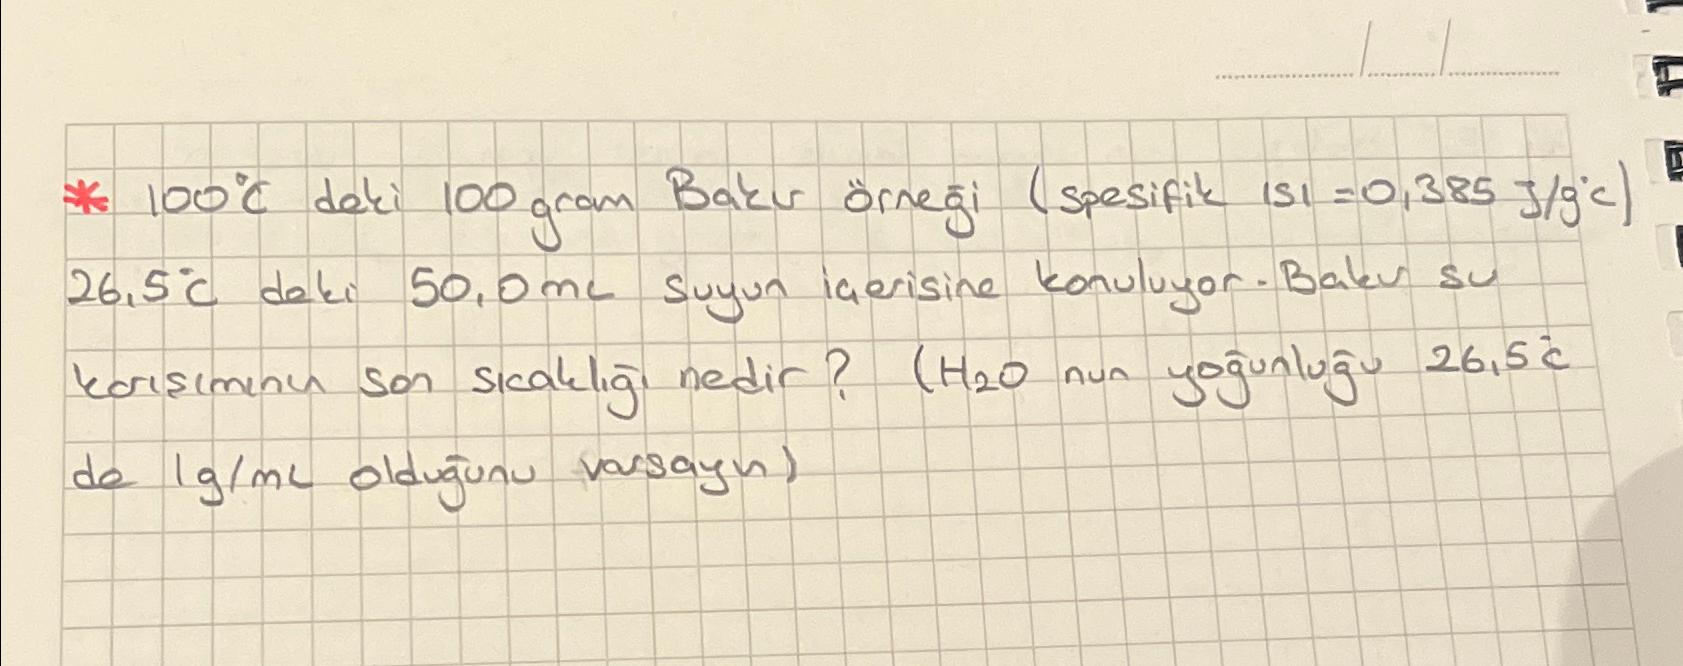 * 100°C deki 100 gram Bakır örneği (spesifik ısı = 0,385 J/g°C)
26,5°C deki 50,0 mL suyun içerisine konuluyor. Bakır su
karışımının son sıcaklığı nedir? (H₂O nun yoğunluğu 26,5°C
de 1g/mL olduğunu varsayın)